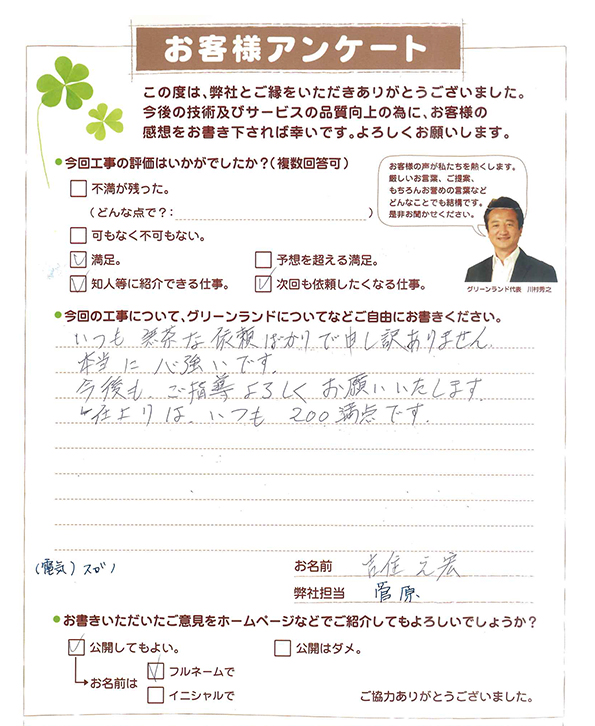 お客様アンケート
この度は、弊社とご縁をいただきありがとうございました。
今後の技術及びサービスの品質向上の為に、お客様の
感想をお書き下されば幸いです。よろしくお願いします。
●今回工事の評価はいかがでしたか?(複数回答可)
不満が残った。
(どんな点で?: )
可もなく不可もない。
満足。
予想を超える満足。
知人等に紹介できる仕事。
次回も依頼したくなる仕事。
お客様の声が私たちを熱くします。
厳しいお言葉、ご提案、
もちろんお誉めの言葉など
どんなことでも結構です。
是非お聞かせください。
グリーンランド代表 川村秀之
●今回の工事について、グリーンランドについてなどご自由にお書きください。
いつも 無茶な依頼ばかりで申し訳ありません.
本当に 心強いです.
今後も、ご指導よろしく お願いいたします.
仕上りは、いつも 200満点です.
(電気) スガノ
お名前 吉住 元宏
弊社担当 菅原
●お書きいただいたご意見をホームページなどでご紹介してもよろしいでしょうか?
公開してもよい。
公開はダメ。
お名前は
フルネームで
イニシャルで
ご協力ありがとうございました。